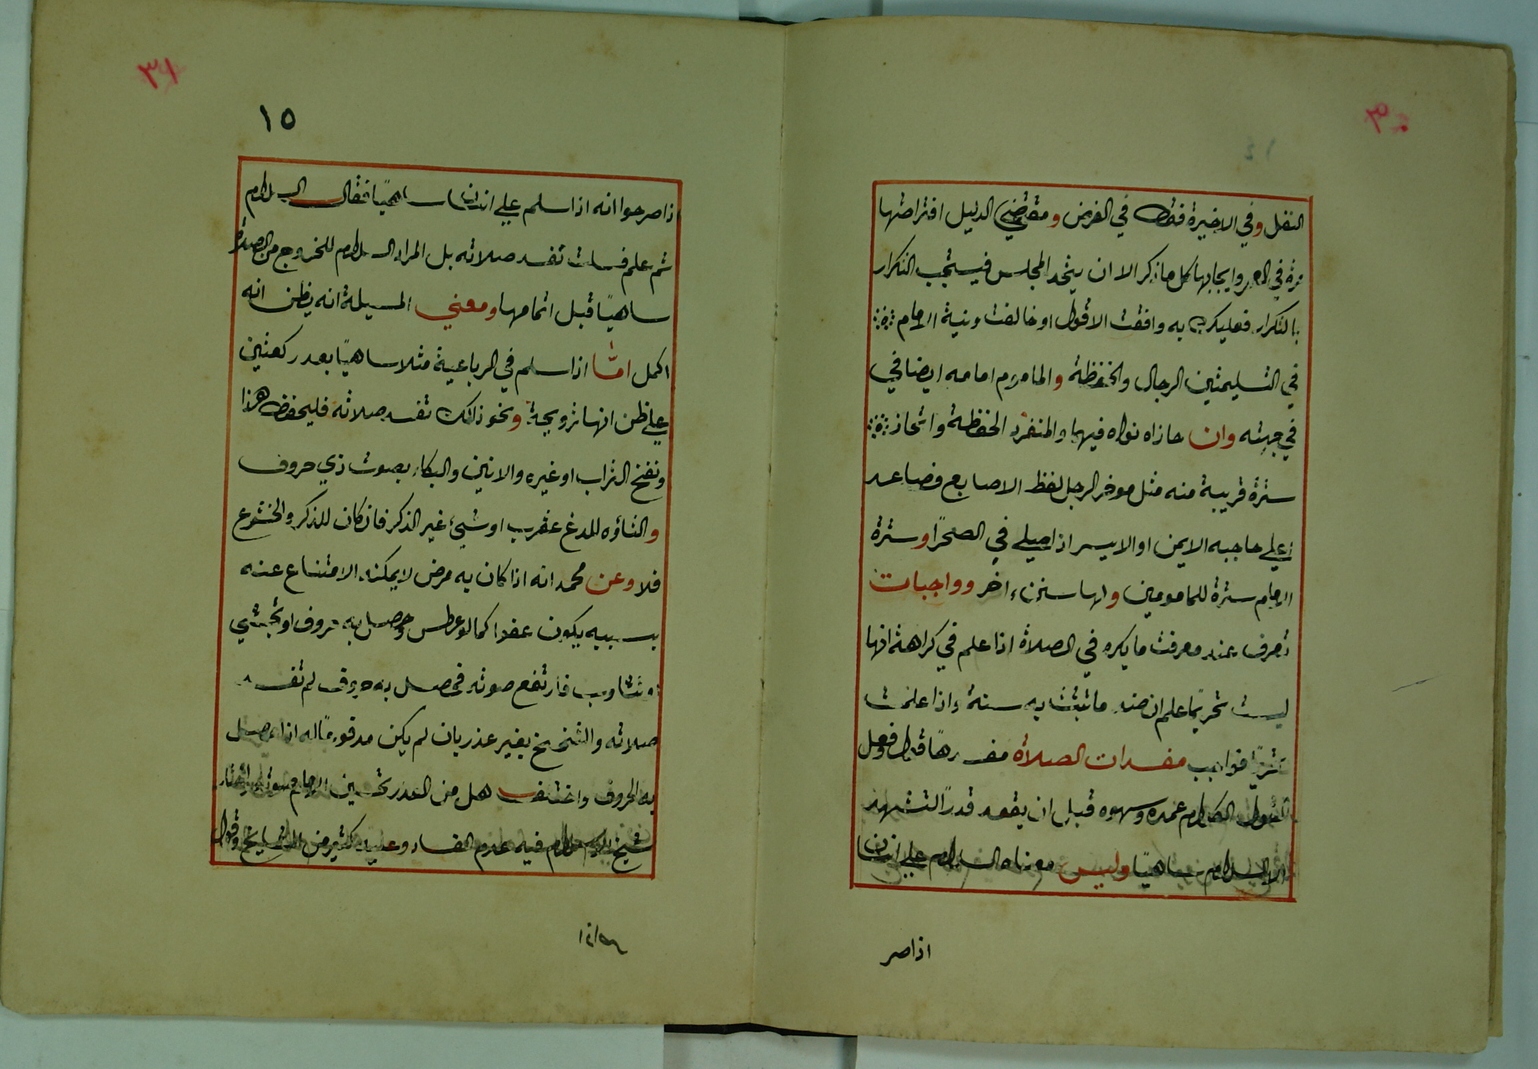 ٣٠
١٤
النفل وفي الاخيرة فقط في الفرض ومقتضي الدليل افتراضها
مرة في العمر وايجابها كل ما ذكر الا ان يتحد المجلس فيستحب التكرار
بالتكرار فعليك به وافقت الاقول او خالفت ونية الامام
في التسليمتين الرجال والحفظة والماموم امامه ايضا في
في جهته وان حاذاه نواه فيهما والمنفرد الحفظة واتخاذ
سترة قريبة منه مثل موخر الرجل لفظ الاصابع فصاعد
اعلي حاجبه الايمن او الايسر اذا صلي في الصحرا وسترة
الامام سترة للمامومين ولها سنن اخر وواجبات
تعرف عند معرفت ما يكره في الصلاة اذا علم في كراهة انها
ليست تحريما علم ان ضده ما تثبت به سنة واذا علمت
تحريما فواجب مفسدات الصلاة مفسدها قول وفعل
القول الكلام عمده وسهوه قبل ان يقعد قدر التشهد
الا السلام ساهيا وليس معناه السلام علي انسان
اذا صر
٣١
١٥
اذا صرحوا انه اذا سلم علي انسان ساهيا فقال السلام
ثم علم فسكت تفسد صلاته بل المراد السلام للخروج من الصلاة
ساهيا قبل اتمامها ومعني المسيلة انه يظن انه
اكمل امّا اذا سلم في الرباعية مثلا ساهيا بعد ركعتين
علي ظن انها ترويحة ونحو ذلك تفسد صلاته فليحفظ هذا
ونفخ التراب او غيره والانين والبكاء بصوت ذي حروف
والتاوه للدغ عقرب او شيء غير الذكر فان كان للذكر والخشوع
فلا وعن محمد انه اذا كان به مرض لا يمكنه الامتناع عنه
بسببه يكون عفوا كما لو عطس وحصل به حروف او تجشي
او تثاوب فارتفع صوته فحصل به حروف لم تفسد
صلاته والتنحنح بغير عذر بان لم يكن مدفوعا له اذا حصل
به الحروف واختلف هل من العذر تحسين الامام صوته اختار
شيخ الاسلام فيه عدم الفساد وعليه كثير من المشايخ وقول